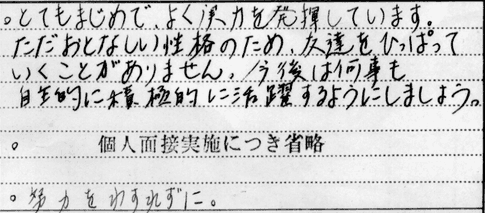 ○とてもまじめで、よく実力を発揮しています。
ただおとなしい性格のため、友達をひっぱって
いくことがありません。今後は何事も
自主的に積極的に活躍するようにしましょう。
○ 個人面接実施につき省略
○努力をわすれずに。